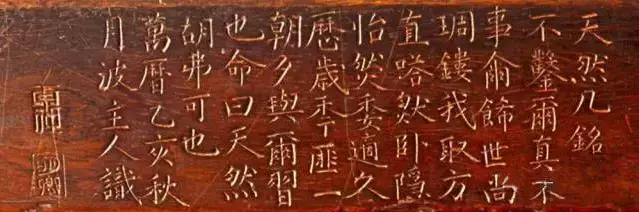 天然几銘
不鑿爾真不
事爾飾世尚
琱鏤我取方
直嗒然卧隐
怡然委適久
歴歲秊匪一
朝夕與爾習
也命曰天然
胡弗可也
萬曆乙亥秋
月波主人識